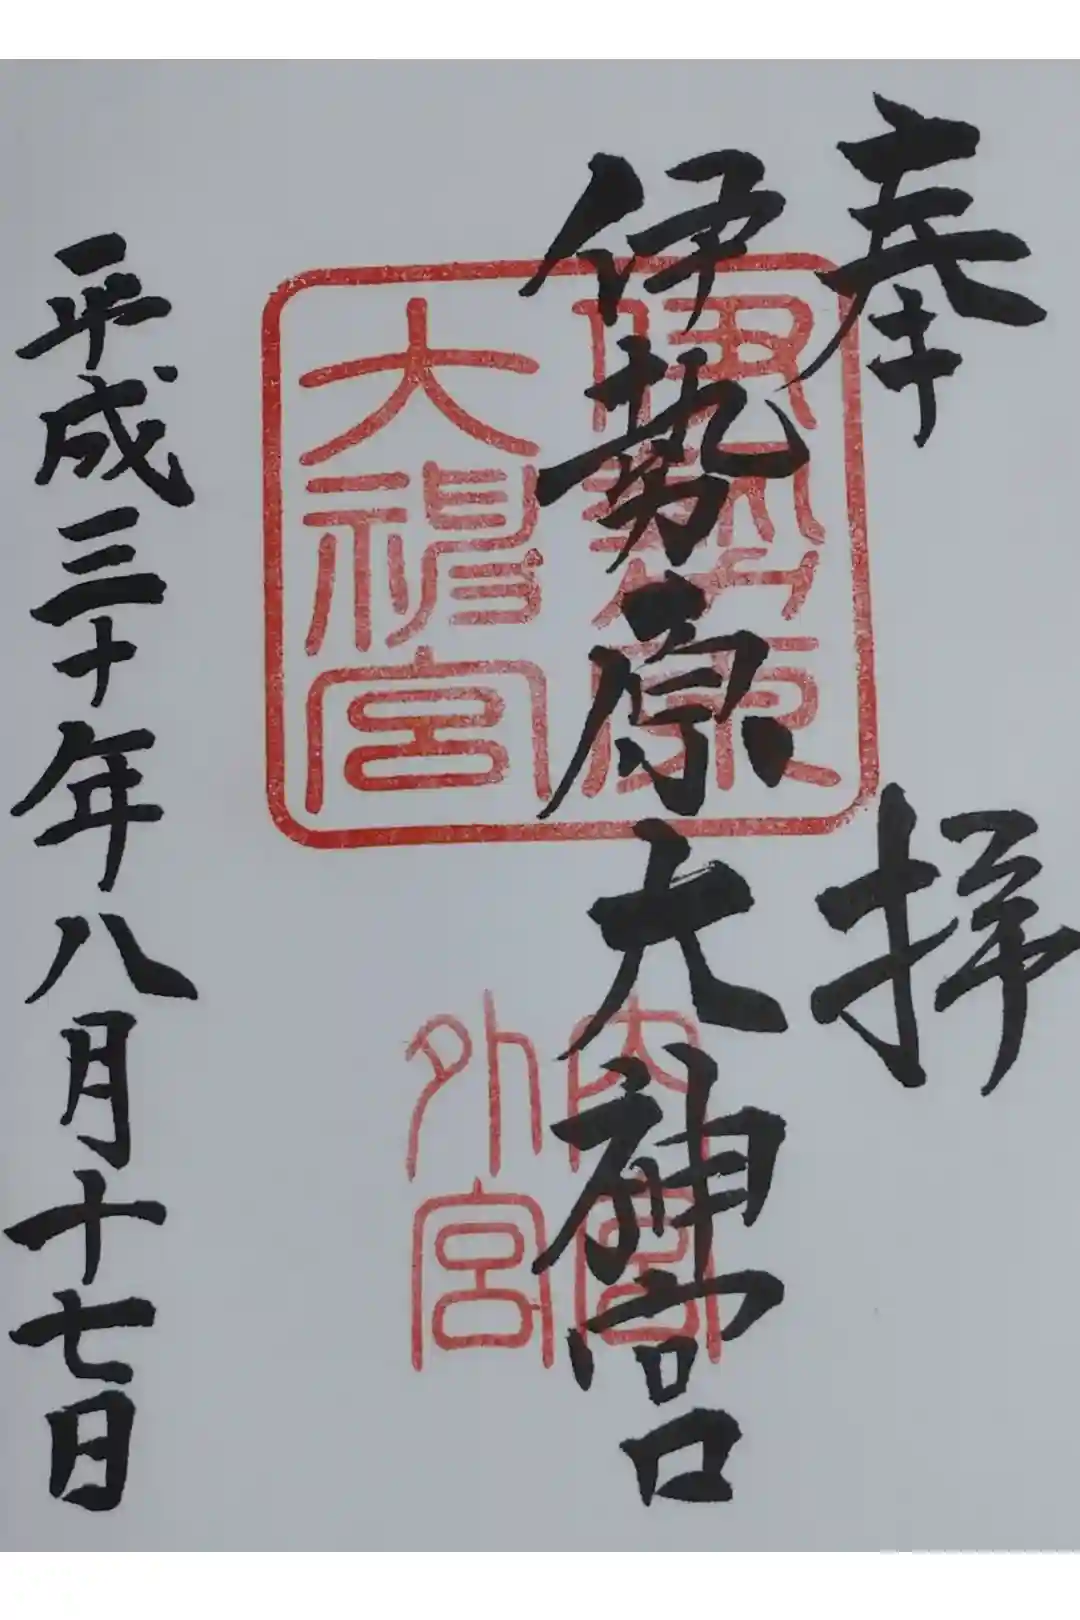 奉拝
伊勢原大神宮
伊勢原
大神宮
内宮
外宮
平成三十年八月十七日